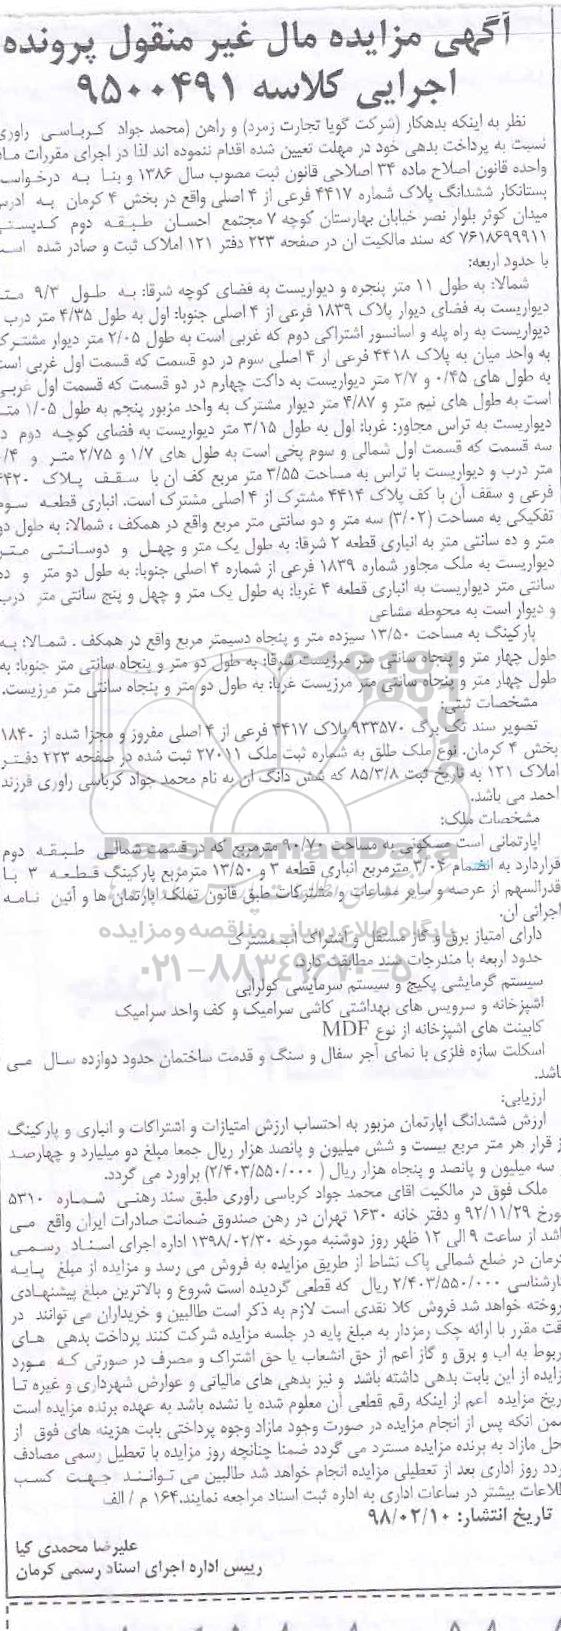 آگهی مزایده مال غیر منقول پرونده
اجرایی کلاسه ۹۵۰۰۴۹۱
نظر به اینکه بدهکار (شرکت گویا تجارت زمرد) و راهن (محمد جواد کرباسی راوری
نسبت به پرداخت بدهی خود در مهلت تعیین شده اقدام ننموده اند لذا در اجرای مقررات
واحده قانون اصلاح ماده ۳۴ اصلاحی قانون ثبت مصوب سال ۱۳۸۶ و بنا به
بستانکار ششدانگ پلاک شماره ۴۴۱۷ فرعی از ۴ اصلی واقع در بخش ۴ کرمان به آدرس
میدان کوثر بلوار نصر خیابان بهارستان کوچه ۷ مجتمع احسان طبقه دوم کدپستی
۷۶۱۸۶۹۹۹۱۱ که سند مالکیت آن در صفحه ۲۲۳ دفتر ۱۲۱ املاک ثبت و صادر شده
با حدود اربعه:
شمالا: به طول ۱۱ متر پنجره و دیواریست به فضای کوچه شرقا: به طول ۹/۳
دیواریست به فضای دیوار پلاک ۱۸۳۹ فرعی از ۴ اصلی جنوبا: اول به طول ۴/۳۵ متر درب
دیواریست به راه پله و آسانسور اشتراکی دوم که غربی است به طول ۲/۰۵ متر دیوار مشترک
به واحد میان به پلاک ۴۴۱۸ فرعی از ۴ اصلی سوم در دو قسمت که قسمت اول غربی است
به طول های ۰/۴۵ و ۲/۷ متر دیواریست به داکت چهارم در دو قسمت که قسمت اول غربی
است به طول های نیم متر و ۴/۸۷ متر دیوار مشترک به واحد مزبور پنجم به طول ۱/۰۵
دیواریست به تراس مجاور: غربا: اول به طول ۳/۱۵ متر دیواریست به فضای کوچه دوم
سه قسمت که قسمت اول شمالی و سوم پخی است به طول های ۱/۷ و ۲/۷۵ متر و
متر درب و دیواریست با تراس به مساحت ۳/۵۵ متر مربع کف آن با سقف پلاک ۴۴۲۰
فرعی و سقف آن با کف پلاک ۴۴۱۴ مشترک از ۴ اصلی مشترک است. انباری قطعه سوم
تفکیکی به مساحت (۳/۰۲) سه متر و دو سانتی متر مربع واقع در همکف ، شمالا: به طول دو
متر و ده سانتی متر به انباری قطعه ۲ شرقا: به طول یک متر و چهل و دوسانتی متر
دیواریست به ملک مجاور شماره ۱۸۳۹ فرعی از شماره ۴ اصلی جنوبا: به طول دو متر و ده
سانتی متر دیواریست به انباری قطعه ۴ غربا: به طول یک متر و چهل و پنج سانتی متر درب
و دیوار است به محوطه مشاعی
پارکینگ به مساحت ۱۳/۵۰ سیزده متر و پنجاه دسیمتر مربع واقع در همکف . شمالا: به
طول چهار متر و پنجاه سانتی متر مرزیست شرقا: به طول دو متر و پنجاه سانتی متر جنوبا: به
طول چهار متر و پنجاه سانتی متر مرزیست غربا: به طول دو متر و پنجاه سانتی متر مرزیست.
مشخصات ثبتی:
تصویر سند تک برگ ۹۳۳۵۷۰ پلاک ۴۴۱۷ فرعی از ۴ اصلی مفروز و مجزا شده از ۱۸۴۰
بخش ۴ کرمان. نوع ملک طلق به شماره ثبت ملک ۲۷۰۱۱ ثبت شده در صفحه ۲۲۳ دفتر
املاک ۱۲۱ به تاریخ ثبت ۸۵/۳/۸ که شش دانگ آن به نام محمد جواد کرباسی راوری فرزند
احمد می باشد.
مشخصات ملک:
آپارتمانی است مسکونی به مساحت ۹۰/۷۰ مترمربع که در قسمت شمالی طبقه دوم
قراردارد به انضمام ۳/۰۲ مترمربع انباری قطعه ۳ و ۱۳/۵۰ مترمربع پارکینگ قطعه ۳ با
قدرالسهم از عرصه و سایر مشاعات و مشترکات طبق قانون تملک آپارتمان ها و آئین نامه
اجرائی آن.
دارای امتیاز برق و گاز مستقل و اشتراک آب مشترک
حدود اربعه با مندرجات سند مطابقت دارد.
سیستم گرمایشی پکیج و سیستم سرمایشی کولرآبی
آشپزخانه و سرویس های بهداشتی کاشی سرامیک و کف واحد سرامیک
کابینت های آشپزخانه از نوع MDF
اسکلت سازه فلزی با نمای آجر سفال و سنگ و قدمت ساختمان حدود دوازده سال می
باشد.
ارزیابی:
ارزش ششدانگ آپارتمان مزبور به احتساب ارزش امتیازات و اشتراکات و انباری و پارکینگ
از قرار هر متر مربع بیست و شش میلیون و پانصد هزار ریال جمعا مبلغ دو میلیارد و چهارصد
و سه میلیون و پانصد و پنجاه هزار ریال ( ۲/۴۰۳/۵۵۰/۰۰۰) براورد می گردد.
ملک فوق در مالکیت آقای محمد جواد کرباسی راوری طبق سند رهنی شماره ۵۳۱۰
مورخ ۹۲/۱۱/۲۹ و دفتر خانه ۱۶۳۰ تهران در رهن صندوق ضمانت صادرات ایران واقع می
باشد از ساعت ۹ الی ۱۲ ظهر روز دوشنبه مورخه ۱۳۹۸/۰۲/۳۰ اداره اجرای اسناد رسمی
کرمان در ضلع شمالی پاک نشاط از طریق مزایده به فروش می رسد و مزایده از مبلغ پایه
کارشناسی ۲/۴۰۳/۵۵۰/۰۰۰ ریال که قطعی گردیده است شروع و بالاترین مبلغ پیشنهادی
فروخته خواهد شد فروش کلا نقدی است لازم به ذکر است طالبین و خریداران می توانند در
وقت مقرر با ارائه چک رمزدار به مبلغ پایه در جلسه مزایده شرکت کنند پرداخت بدهی های
مربوط به آب و برق و گاز اعم از حق انشعاب یا حق اشتراک و مصرف در صورتی که مورد
مزایده از این بابت بدهی داشته باشد و نیز بدهی های مالیاتی و عوارض شهرداری و غیره تا
تاریخ مزایده اعم از اینکه رقم قطعی آن معلوم شده یا نشده باشد به عهده برنده مزایده است
ضمن آنکه پس از انجام مزایده در صورت وجود مازاد وجوه پرداختی بابت هزینه های فوق از
محل مازاد به برنده مزایده مسترد می گردد ضمنا چنانچه روز مزایده با تعطیل رسمی مصادف
گردد روز اداری بعد از تعطیلی مزایده انجام خواهد شد طالبین می توانند جهت کسب
اطلاعات بیشتر در ساعات اداری به اداره ثبت اسناد مراجعه نمایند.۱۶۴ م / الف
تاریخ انتشار: ۹۸/۰۲/۱۰
علیرضا محمدی کیا
رییس اداره اجرای اسناد رسمی کرمان
ParsNamadData
پایگاه اطلاع رسانی مناقصه و مزایده
۰۲۱-۸۸۳۴۹۶۷۰-۵